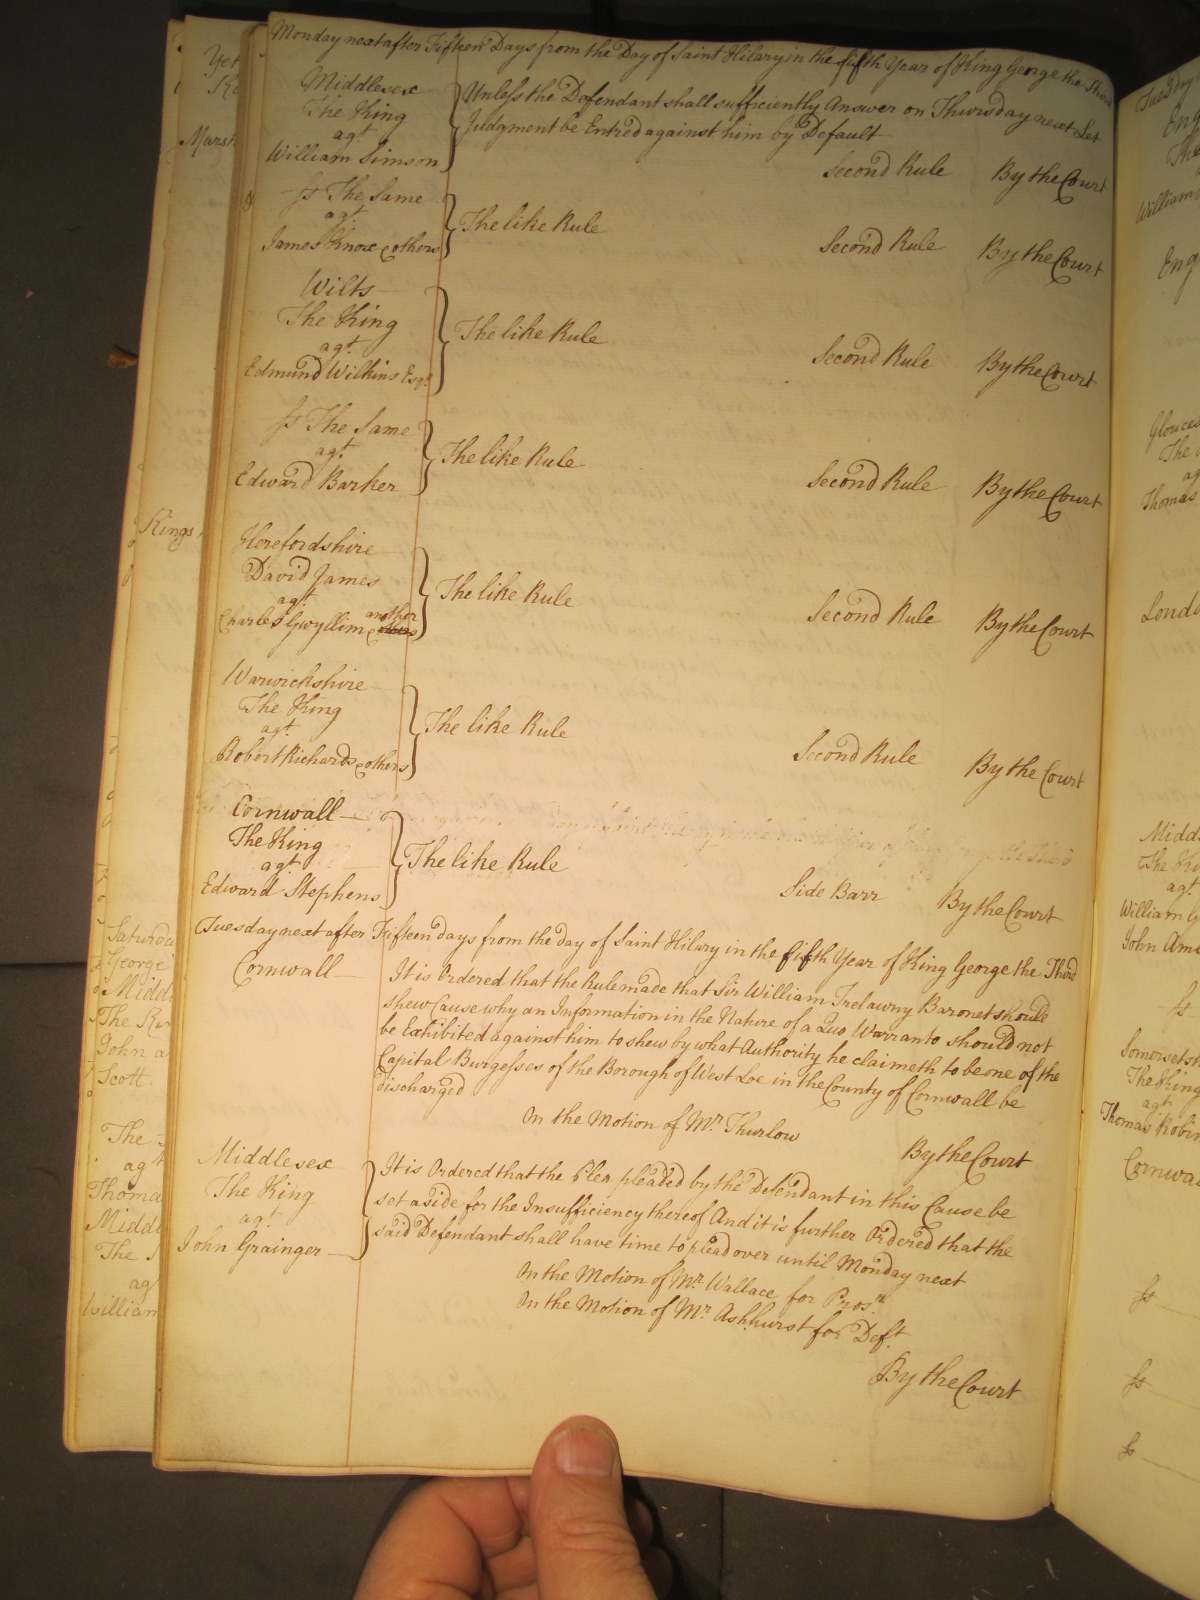 Monday next after Fifteen Days from the Day of Saint Hilary in the fifth Year of King George the Third
Middlesex
The King
agt
William Simson
Unless the Defendant shall sufficiently Answer on Thursday next Let
Judgment be Entred against him by Default
Second Rule By the Court
ss The Same
agt
James Knox & others
The like Rule
Second Rule By the Court
Wilts
The King
agt
Edmund Wilkins Esqr
The like Rule
Second Rule By the Court
ss The Same
agt
Edward Barker
The like Rule
Second Rule By the Court
Herefordshire
David James
agt
Charles Gwyllim & another
The like Rule
Second Rule By the Court
Warwickshire
The King
agt
Robert Richards & others
The like Rule
Second Rule By the Court
Cornwall
The King
agt
Edward Stephens
The like Rule
Side Barr By the Court
Tuesday next after Fifteen days from the day of Saint Hilary in the fifth Year of King George the Third
Cornwall
It is Ordered that the Rule made that Sir William Trelawny Baronet should
shew Cause why an Information in the Nature of a Quo Warranto should not
be Exhibited against him to shew by what Authority he claimeth to be one of the
Capital Burgesses of the Borough of West Loe in the County of Cornwall be
discharged
On the Motion of Mr Thurlow
By the Court
Middlesex
The King
agt
John Grainger
It is Ordered that the Plea pleaded by the Defendant in this Cause be
set aside for the Insufficiency thereof And it is further Ordered that the
said Defendant shall have time to plead over until Monday next
On the Motion of Mr Wallace for Prosr
On the Motion of Mr Ashhurst for Deft
By the Court
Kings
Saturda
George
Midd
John a
Scott
The
agt
Thoma
Midd
The
agt
William
Tuesday
Eng
The
William
Eng
Glouces
The
ag
Thomas
Londo
Midd
The Ki
agt
William G
John Ame
ss
Somersetsh
The King
agt
Thomas Robin
Cornwa
ss
ss
ss